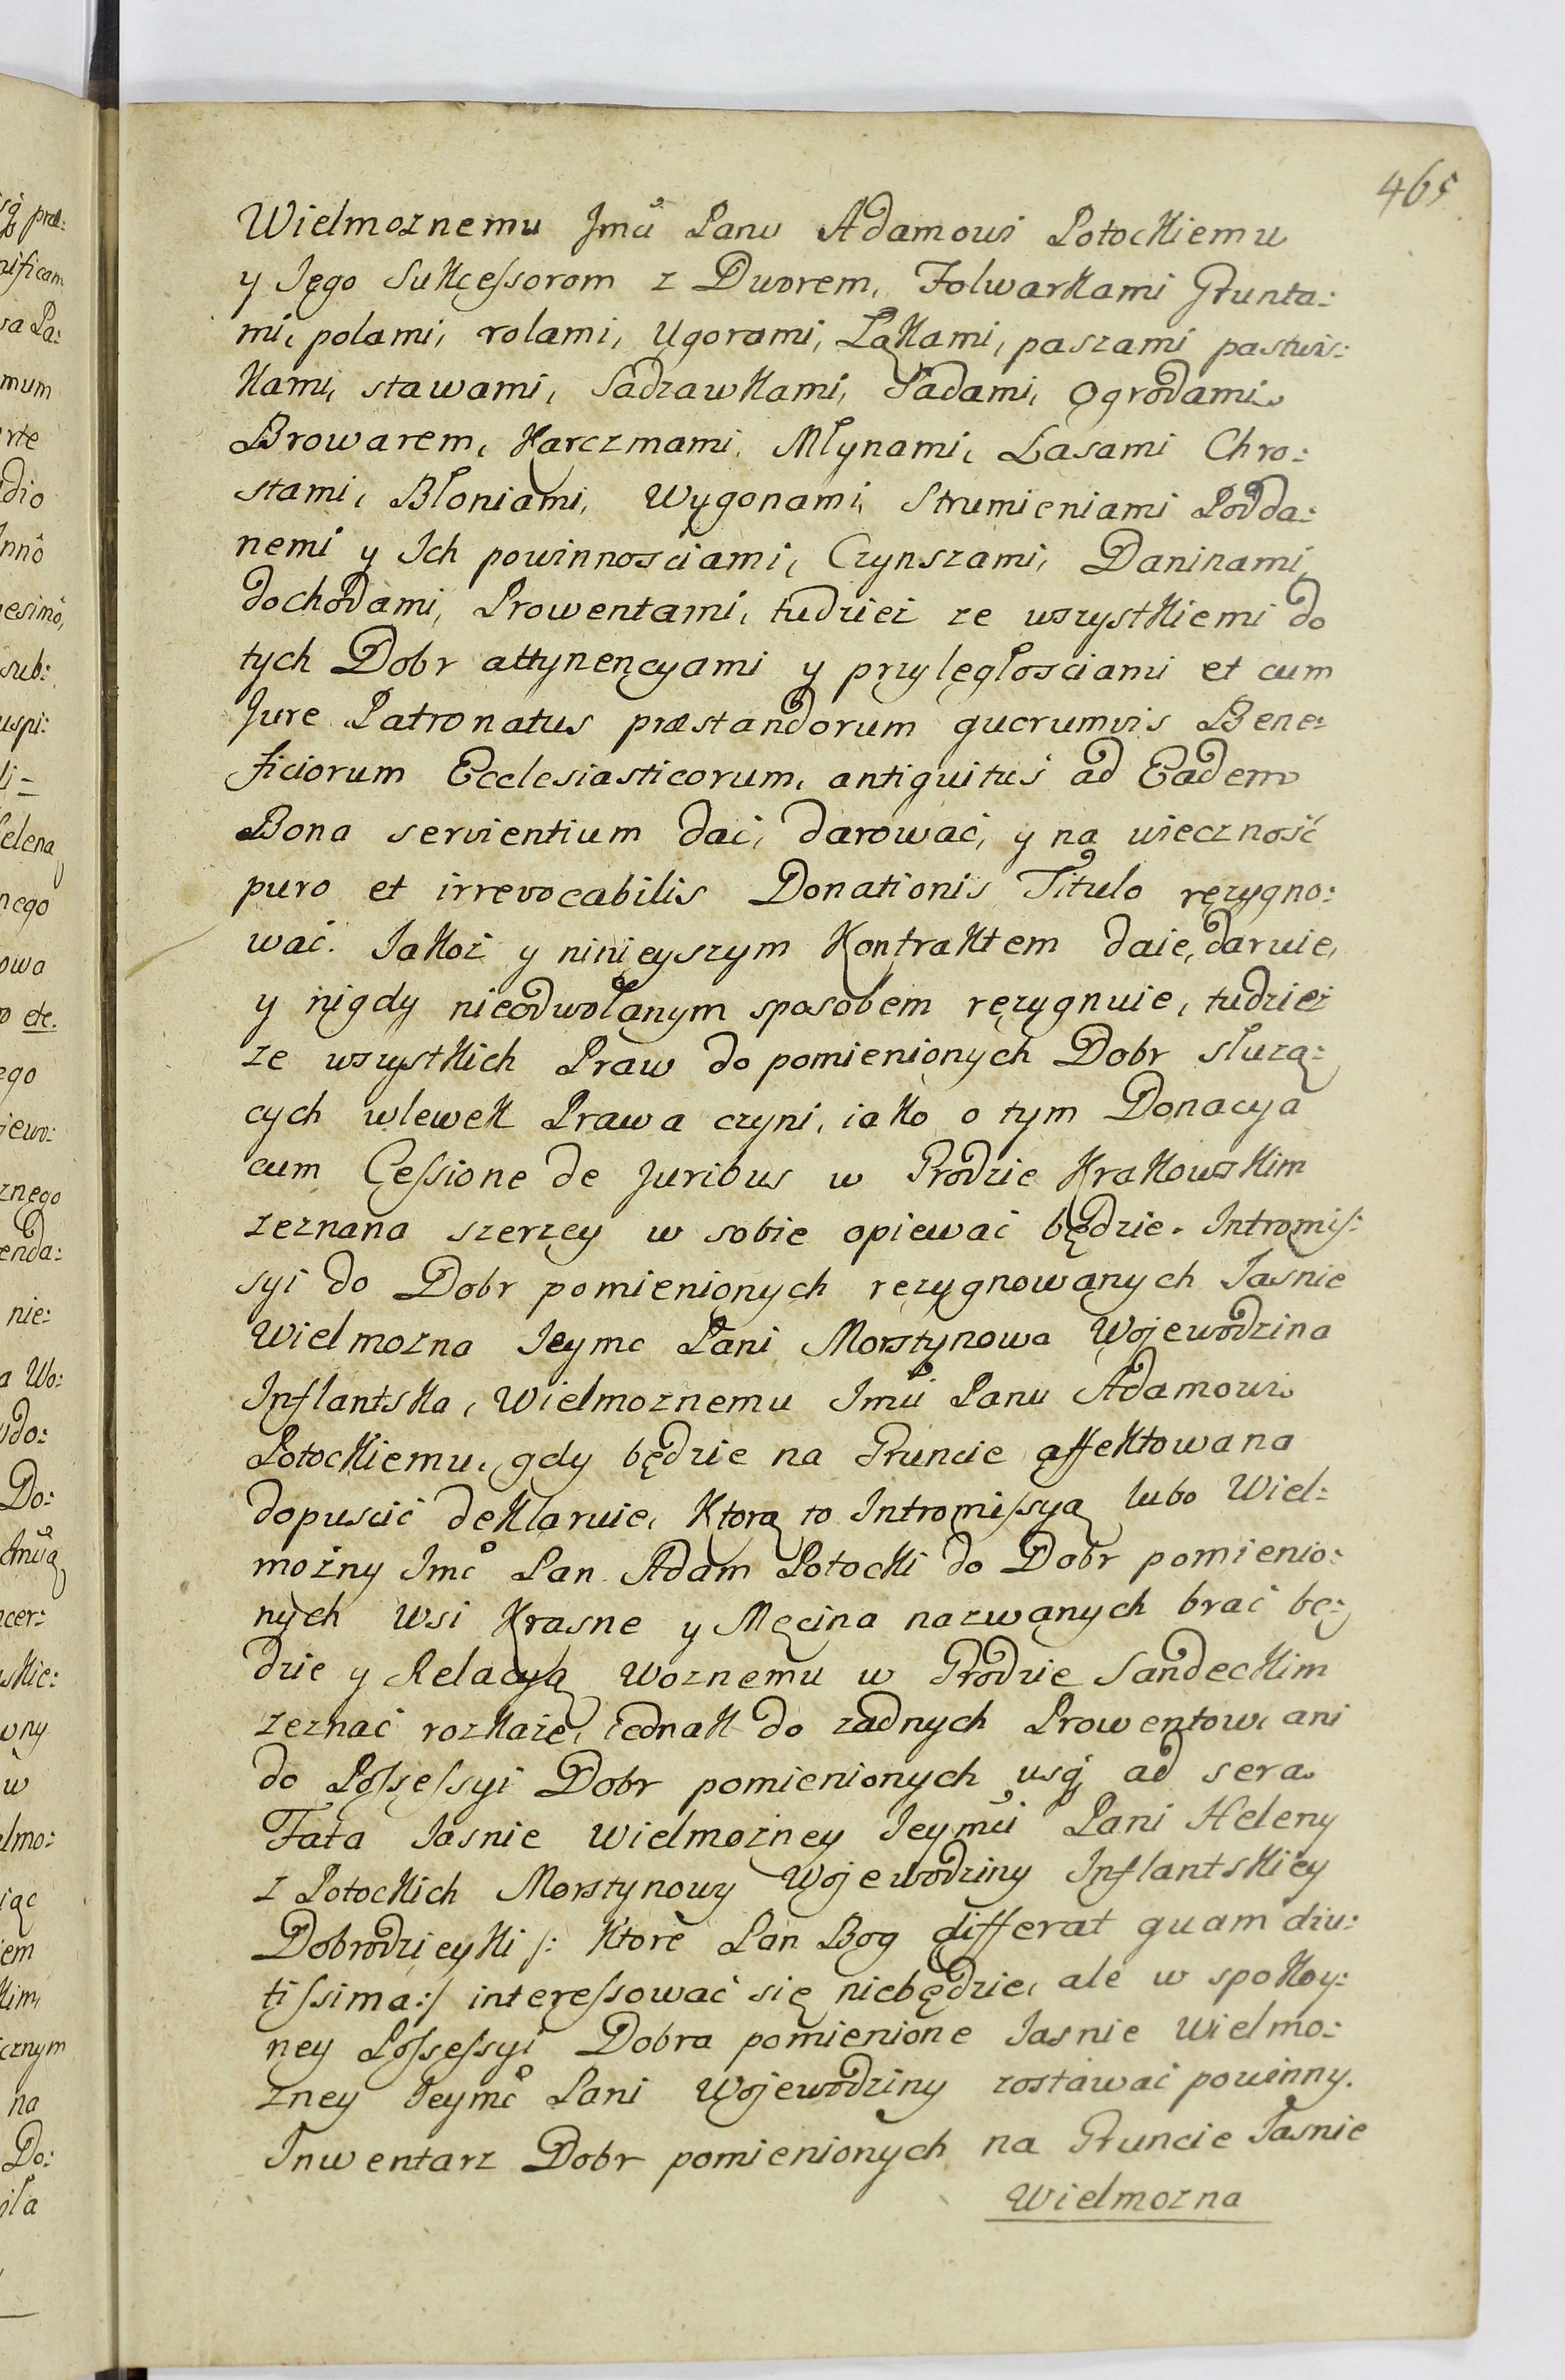 465
Wielmoznemu Jmċi Panu Adamowi Potockiemu
y Jego Sukcessorom z Dworem, Folwarkami Grunta:
mi, polami, rolami, Ugorami, Łąkami, paszami pastwis:
kami, stawami, Sadzawkami, Sadami, Ogrodami
Browarem, Karczmami, Młynami, Lasami Chro:
stami, Błoniami, Wygonami, Strumieniami Podda:
nemi y Ich powinnosciami, Czynszami, Daninami,
dochodami, Prowentami, tudzież ze wszystkiemi do
tych Dobr attynencyami y przyległosciami et cum
Jure Patronatus præstandorum qucrumvis Bene:
ficiorum Ecclesiasticorum, antiquitus ad Eadem
Bona servientium dać, darować, y na wieczność
puro et irrevocabilis Donationis Titulo rezygno:
wać. Jakoż y ninieyszym Kontraktem daie, daruie,
y nigdy nieodwołanym sposobem rezygnuie, tudzież
ze wszystkich Praw do pomienionych Dobr słuzą:
cych wlewek Prawa czyni, iako o tym Donacya
cum Cessione de Juribus w Grodzie Krakowskim
zeznana szerzey w sobie opiewać będzie. Intromis:
syi do Dobr pomienionych rezygnowanych Jasnie
Wielmozna Jeymc Pani Morsztynowa Wojewodzina
Inflantska, Wielmoznemu Jmċi Panu Adamowi
Potockiemu, gdy będzie na Gruncie affektowana
dopuscić deklaruie, Ktorą to Intromissyą lubo Wiel:
możny Jmċ Pan Adam Potocki do Dobr pomienio:
nych Wsi Krasne y Męcina nazwanych brać bę:
dzie y Relacyą Woznemu w Grodzie Sandeckim
zeznać rozkaże, iednak do zadnych Prowentow, ani
do Possessyi Dobr pomienionych usq ad sera
Fata Jasnie Wielmożney Jeymċi Pani Heleny
z Potockich Morsztynowy Wojewodziny Inflantskiey
Dobrodzieyki /: Ktore Pan Bog differat quam diu:
tissima :/ interessować się niebędzie, ale w spokoy:
ney Possessyi Dobra pomienione Jasnie Wielmo:
zney Jeymċ Pani Wojewodziny zostawać powinny.
Inwentarz Dobr pomienionych na Gruncie Jasnie
Wielmozna